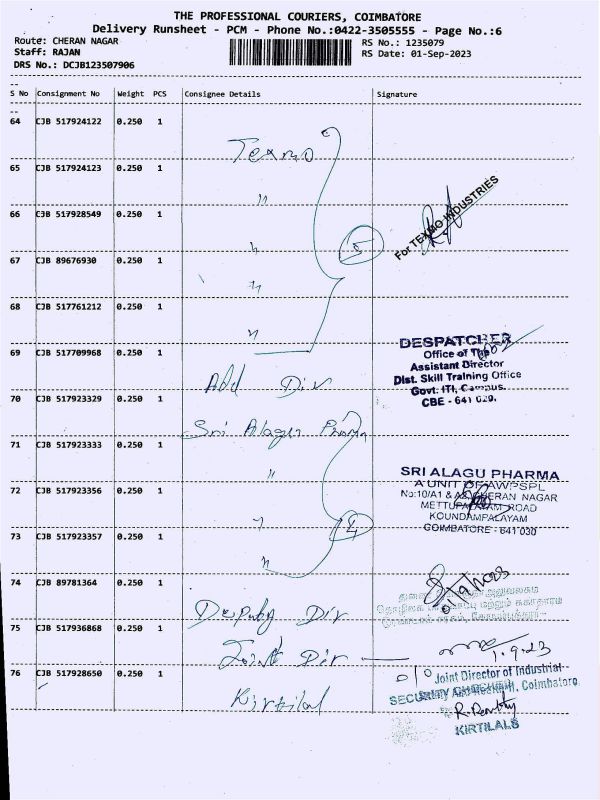 THE PROFESSIONAL COURIERS, COIMBATORE
Delivery Runsheet - PCM - Phone No.:0422-3505555 - Page No.:6
Route: CHERAN NAGAR
Staff: RAJAN
DRS No.: DCJB123507906
RS No.: 1235079
RS Date: 01-Sep-2023
S No Consignment No Weight PCS Consignee Details Signature
64 CJB 517924122 0.250 1
Texmo
65 CJB 517924123 0.250 1
"
66 CJB 517928549 0.250 1
"
5
For TEXMO INDUSTRIES
67 CJB 89676930 0.250 1
"
68 CJB 517761212 0.250 1
"
69 CJB 517709968 0.250 1
Add Dir
DESPATCHER
Office of The
Assistant Director
Dist. Skill Training Office
Govt. ITI, Campus.
CBE - 641 029.
70 CJB 517923329 0.250 1
Sri Alagu Pharma
71 CJB 517923333 0.250 1
"
72 CJB 517923356 0.250 1
"
4
SRI ALAGU PHARMA
A UNIT OF AWPSPL
CHERAN NAGAR
METTUPALAYAM ROAD
KOUNDAMPALAYAM
COIMBATORE - 641 030
73 CJB 517923357 0.250 1
"
74 CJB 89781364 0.250 1
Deputy Dir
75 CJB 517936868 0.250 1
Joint Dir
1.9.23
76 CJB 517928650 0.250 1
Kirtilal
o/o Joint Director of Industrial
Coimbatore
SECURITY
KIRTILALS